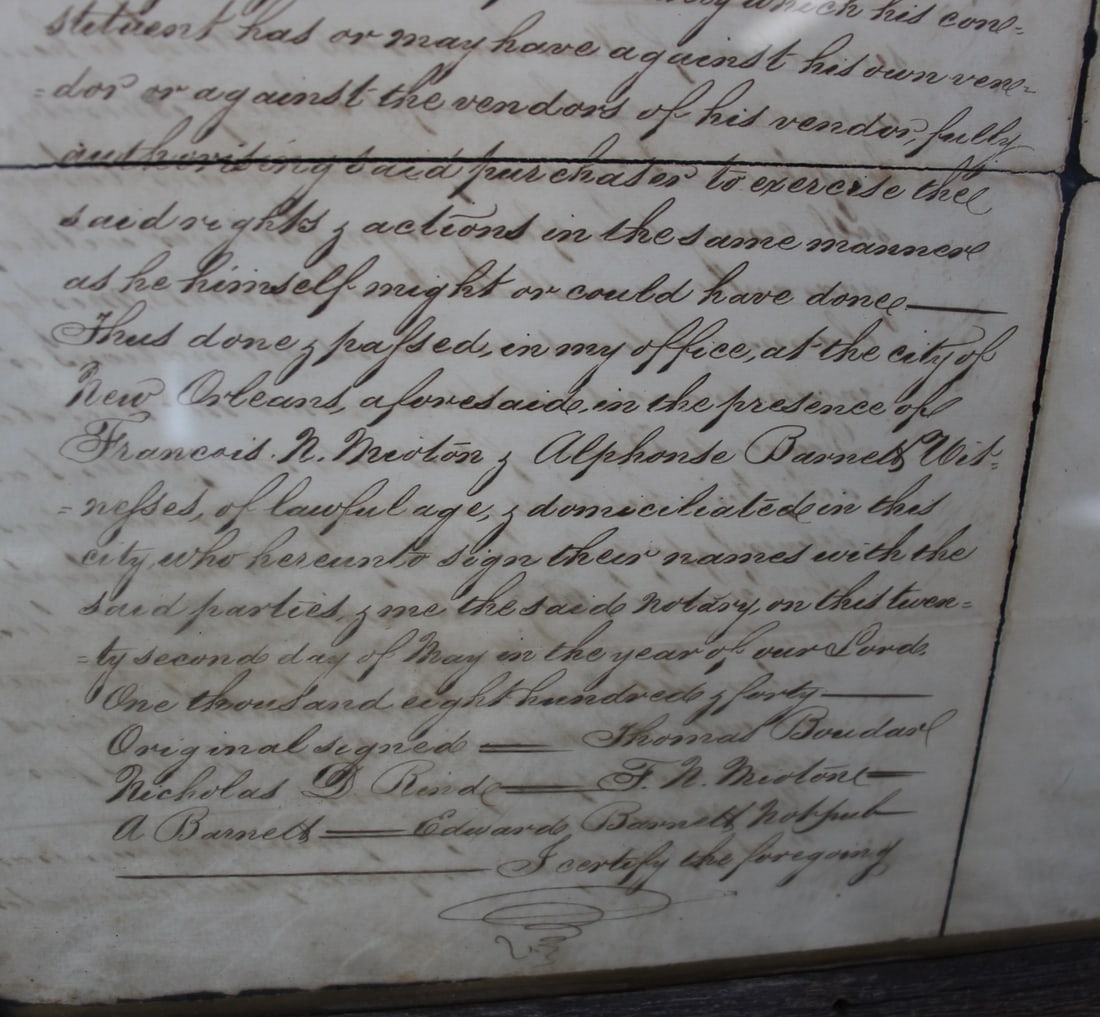 which his con-
stituent has or may have against his own ven-
=dor or against the vendors of his vendor, fully
authorising said purchaser to exercise the
said rights & actions in the same manner
as he himself might or could have done
Thus done & passed, in my office, at the city of
New Orleans, aforesaid, in the presence of
Francois. N. Mioton & Alphonse Barnett Wit-
=nesses, of lawful age, & domiciliated in this
city, who hereunto sign their names with the
said parties, & me the said Notary, on this twen=
=ty second day of May in the year of our Lord.
One thousand eight hundred & forty
Original signed = Thomas Boudar
Nicholas D Rind = F. N. Mioton
A Barnett = Edward Barnett Not pub
I certify the foregoing